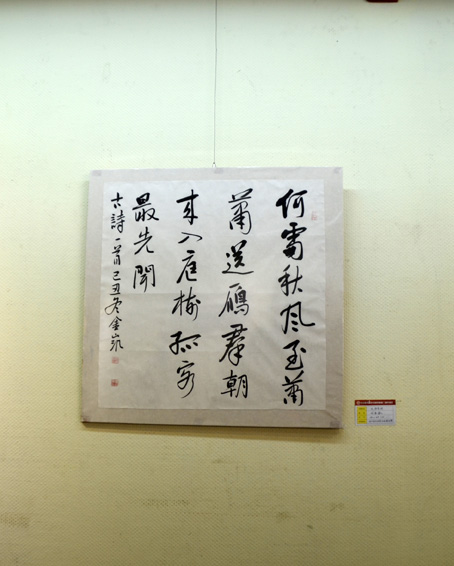 何處秋風至蕭
蕭送鴈羣朝
来入庭樹孤客
最先聞
古詩一首己丑冬金凱